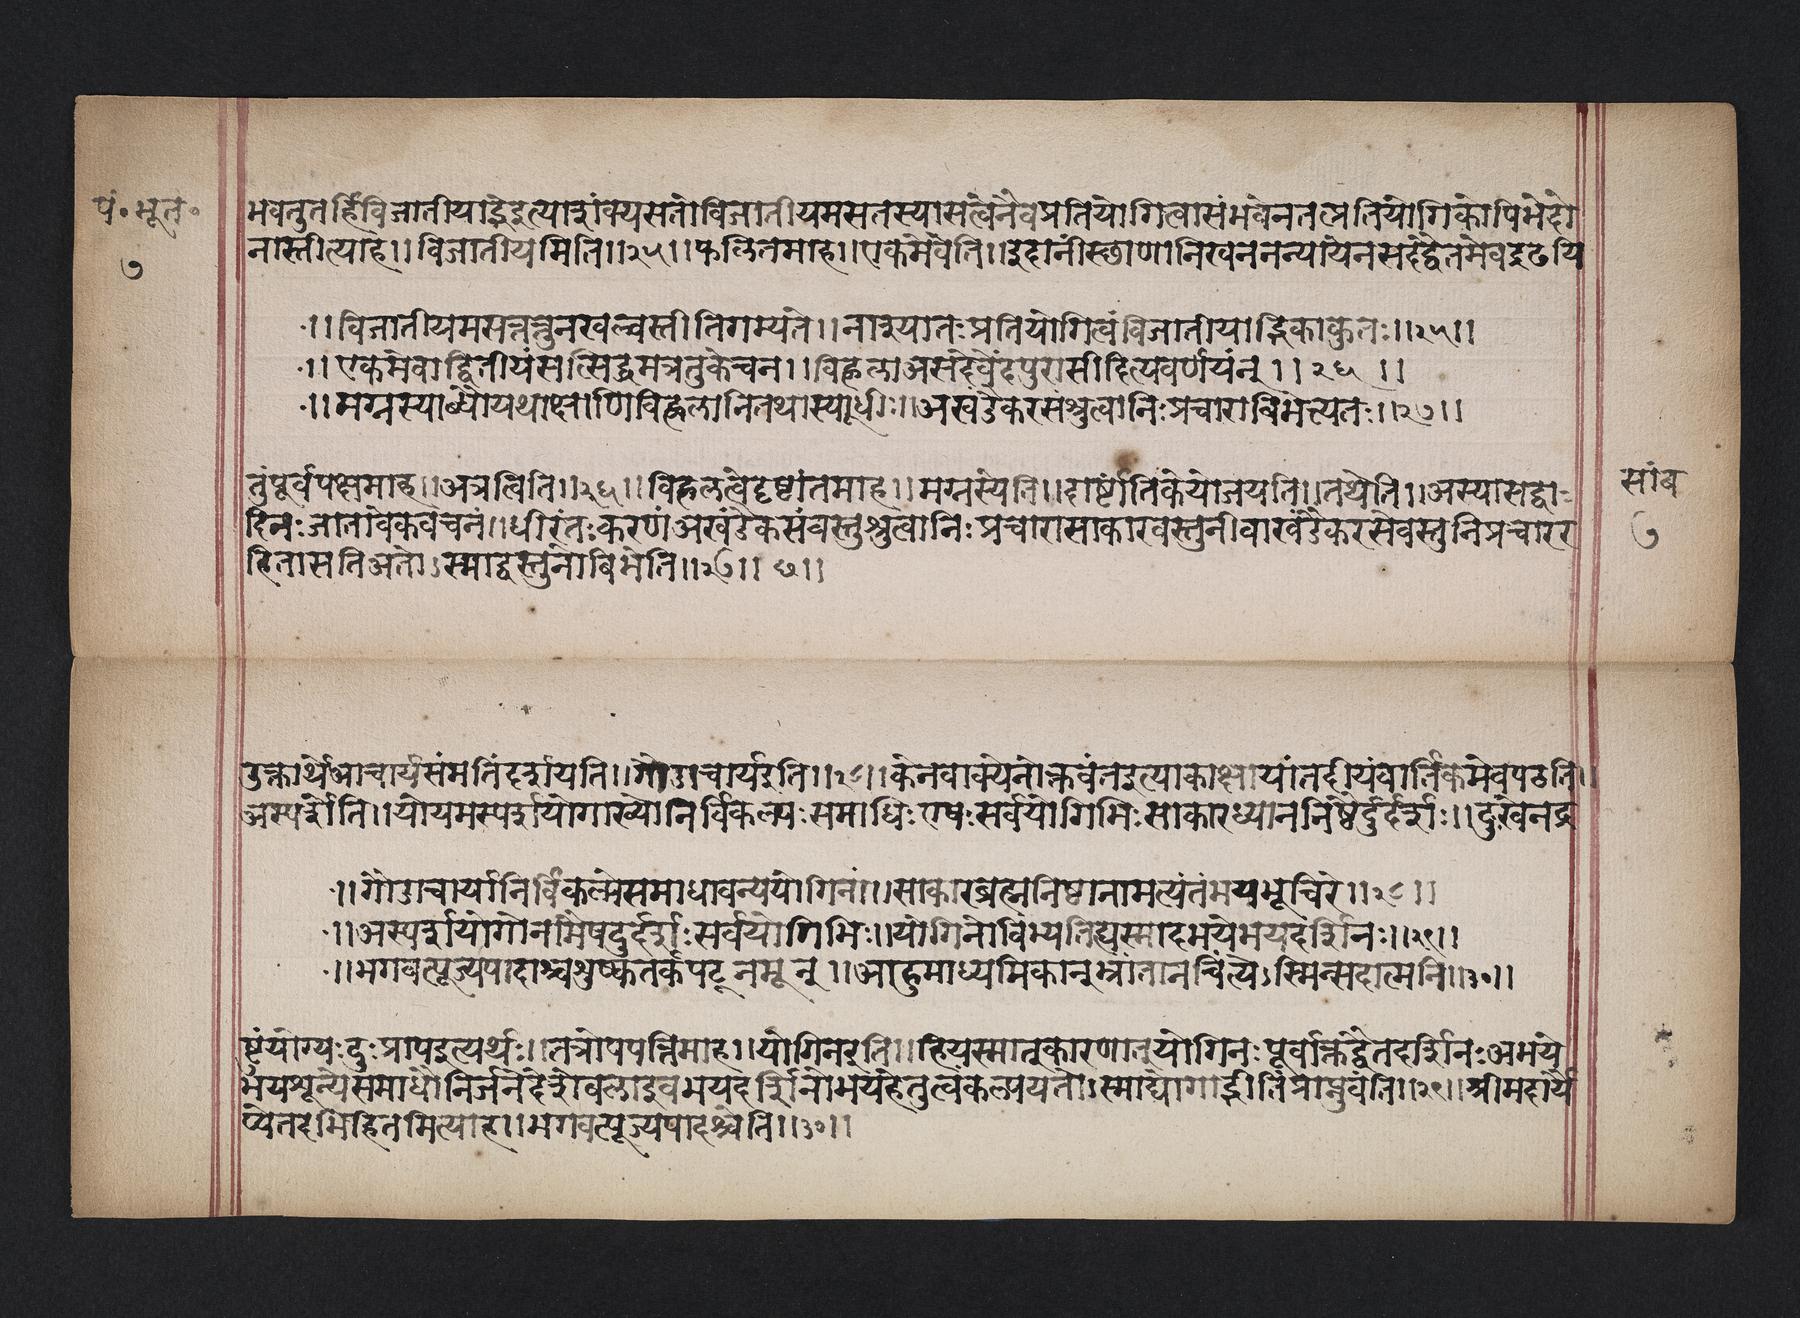 पं॰ भूत॰
७
भवतुतर्हिविजातीयाद्भेदइत्याशंक्यसतोविजातीयमसतस्यासत्वेनैवप्रतियोगित्वासंभवेनतत्प्रतियोगिकोपिभेदो
नास्तीत्याह।।विजातीयमिति।।२५।।फलितमाह।।एकमेवेति।।इदानींस्छाणानिखननन्यायेनसदद्वैतमेवदृढयि
।।विजातीयमसत्तत्तुनखल्वस्तीतिगम्यते।।नास्यातःप्रतियोगित्वंविजातीयाद्भिदाकुतः।।२५।।
।।एकमेवाद्वितीयंसत्सिद्धमत्रतुकेचन।।विह्वलाअसदेवेदंपुरासीदित्यवर्णयंन् ।। २६ ।।
।।मग्नस्याब्धौयथाक्षाणिविह्वलानितथास्यधीः।।अखंडैकरसंश्रुत्वानिःप्रचाराबिभेत्यतः।।२७।।
तुंपूर्वपक्षमाह।।अत्रत्विति।।२६।।विह्वलत्वेदृष्टांतमाह।।मग्नस्येति।।दार्ष्टांतिकेयोजयति।।तथेति।।अस्यासद्वा-
दिनःजातावेकवचनं।।धीरंतःकरणंअखंडैकसंवस्तुश्रुत्वानिःप्रचारासाकारवस्तुनीवाखंडैकरसेवस्तुनिप्रचारर
हितासतिअतोऽस्माद्वस्तुनोबिभेति।।२७।। छ।।
सांब
७
उक्तार्थेआचार्यसंमतिंदर्शयति।।गौडाचार्यइति।।२८।।केनवाक्येनोक्तवंतइत्याकांक्षायांतदीयंवार्तिकमेवपठति।।
अस्पर्शेति।।योयमस्पर्शयोगाख्योनिर्विकल्पःसमाधिःएषःसर्वयोगिभिःसाकारध्याननिष्ठैर्दुर्दर्शः।।दुःखेनद्र
।।गौडाचार्यानिर्विकल्पेसमाधावन्ययोगिनां।।साकारब्रह्मनिष्ठानामत्यंतंभयमूचिरे।।२८।।
।।अस्पर्शयोगोनामैषदुर्दर्शःसर्वयोगिभिः।।योगिनोबिभ्यतिह्यस्मादभयेभयदर्शिनः।।२९।।
।।भगवत्पूज्यपादाश्चशुष्कतर्कपटूनमून् ।।आहुमाध्यमिकान्भ्रांतानचिंत्येऽस्मिन्सदात्मनि।।३०।।
ष्टुंयोग्यःदुःप्रापइत्यर्थः।।तत्रोपपत्तिमाह।।योगिनइति।।हियस्मात्कारणात्योगिनःपूर्वोक्तद्वैतदर्शिनःअभये
भयशून्येसमाधौनिर्जनेदेशेबालाइवभयदर्शिनोभयहेतुत्वंकल्पयंतोऽस्माद्योगाद्भीतिंप्राप्नुवंति।।२९।।श्रीमदाचार्यै
प्येतदभिहितमित्याह।।भगवत्पूज्यपादश्चेति।।३०।।